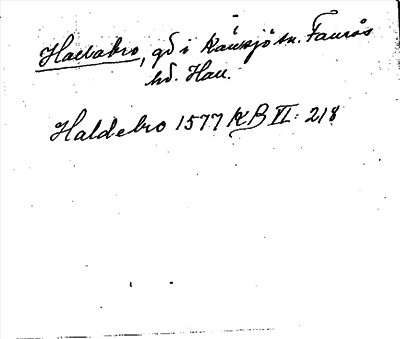 Hallabro, gd i Känsjö sn. Faurås
hd. Hall.
Haldebro 1577 KB VI: 218